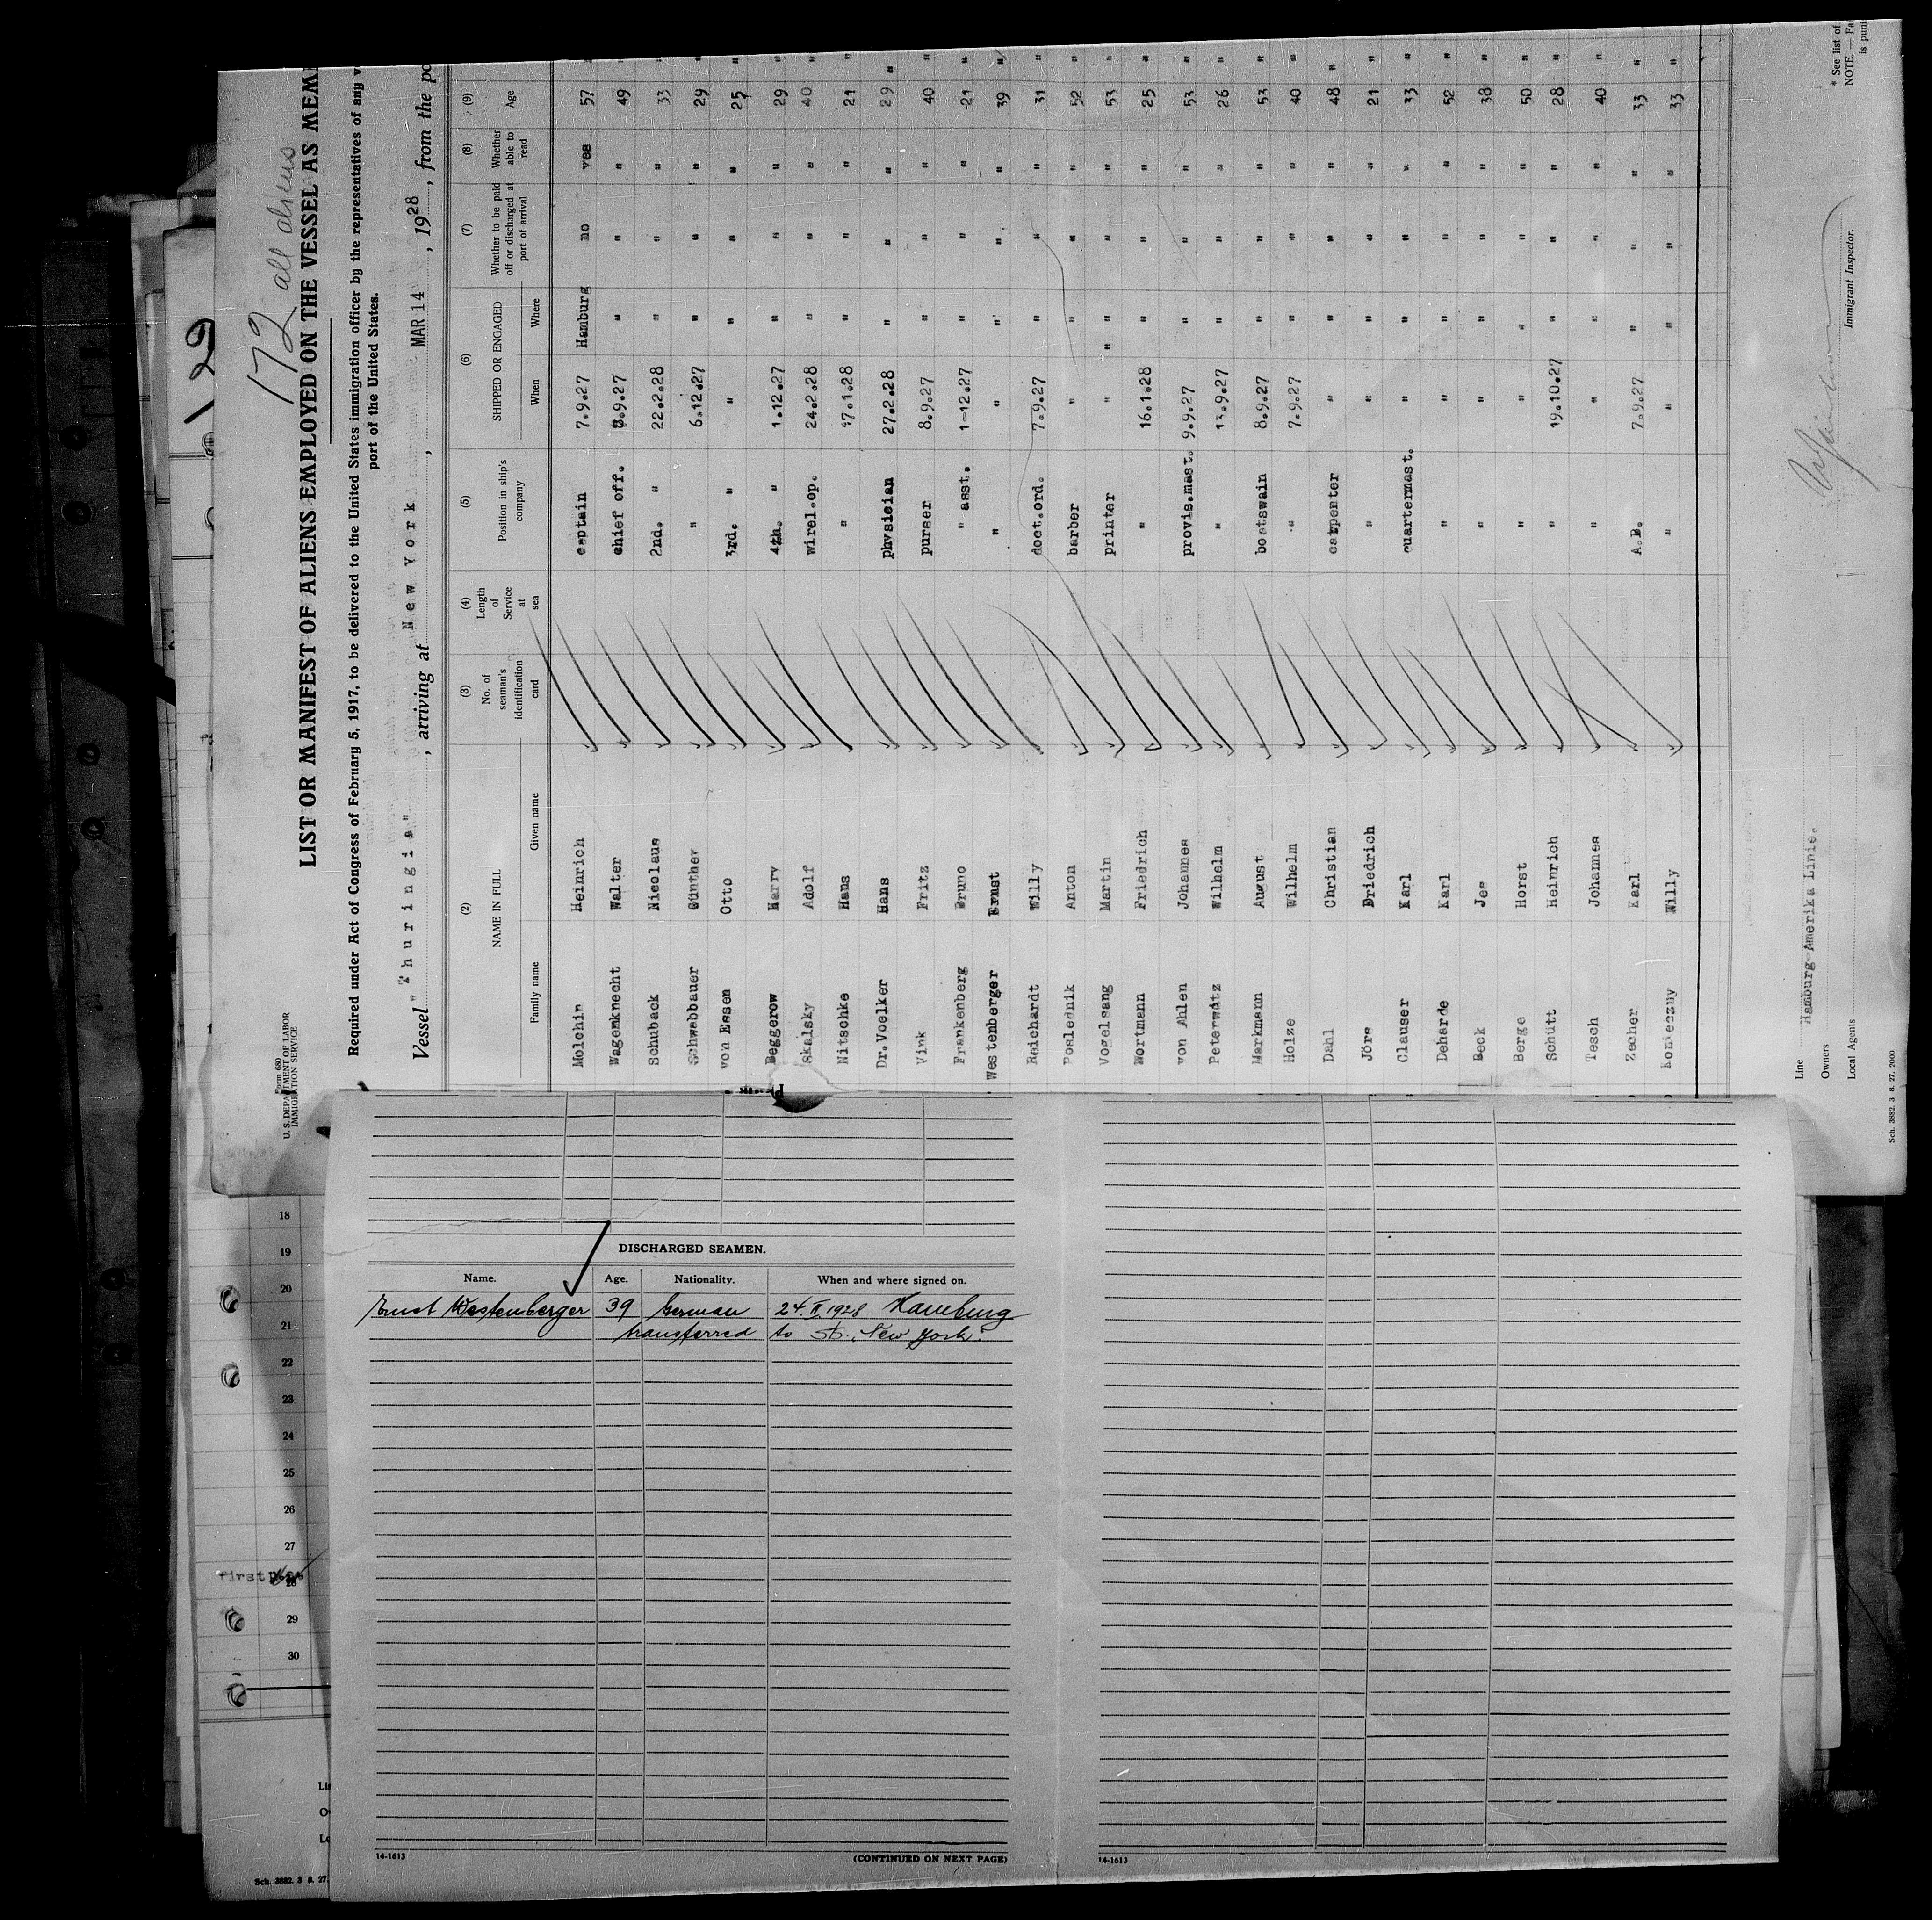 172 all aliens
Form 680
U. S. DEPARTMENT OF LABOR
IMMIGRATION SERVICE
LIST OR MANIFEST OF ALIENS EMPLOYED ON THE VESSEL AS MEM
Required under Act of Congress of February 5, 1917, to be delivered to the United States immigration officer by the representatives of any v
port of the United States.
Vessel "Thuringia", arriving at New York, MAR 14, 1928, from the po
(2) (3) (4) (5) (6) (7) (8) (9)
NAME IN FULL No. of seaman's identification card Length of Service at sea Position in ship's company SHIPPED OR ENGAGED Whether to be paid off or discharged at port of arrival Whether able to read Age
Family name Given name When Where
Molchin Heinrich captain 7.9.27 Hamburg no yes 57
Wagenknecht Walter chief off. 8.9.27 " " " 49 "
Schuback Nicolaus 2nd. " 22.2.28 " " " 33 "
Schwabbauer Günther " 6.12.27 " " " 29 "
von Essen Otto 3rd. " " " " " 25 "
Beggerow Harry 4th. " 1.12.27 " " " 29 "
Skalsky Adolf wirel.op. 24.2.28 " " " 40 "
Nitschke Hans " 17.1.28 " " " 21 "
Dr. Voelker Hans physician 27.2.28 " " " 29 "
Vink Fritz purser 8.9.27 " " " 40 "
Frankenberg Bruno " asst. 1-12.27 " " " 21 "
Westenberger Ernst " " " " " 39 "
Reichardt Willy doct.ord. 7.9.27 " " " 31 "
Poslednik Anton barber " " " " 52 "
Vogelsang Martin printer " " " " 53 "
Wortmann Friedrich " 16.1.28 " " " 25 "
von Ahlen Johannes provis.mast. 9.9.27 " " " 53 "
Peterwitz Wilhelm " 13.9.27 " " " 26 "
Markmann August boatswain 8.9.27 " " " 53 "
Holze Wilhelm " 7.9.27 " " " 40 "
Dahl Christian carpenter " " " " 48 "
Jörs Friedrich " " " " " 21 "
Clauser Karl quartermast. " " " " 33 "
Deharde Karl " " " " " 52 "
Beck Jes " " " " " 38 "
Berge Horst " " " " " 50 "
Schütt Heinrich " 19.10.27 " " " 28 "
Tesch Johannes " " " " " 40 "
Zecher Karl A.B. 7.9.27 " " " 33 "
Konieczny Willy " " " " " 33 "
Line Hamburg-Amerika Linie.
Owners
Local Agents
Immigrant Inspector.
* See list of
NOTE.—Fa
is puni
Sch. 3882. 3 8. 27. 2000
DISCHARGED SEAMEN.
Name. Age. Nationality. When and where signed on.
Ernst Westenberger 39 German 24.II.1928 Hamburg
transferred to SS. "New York".
14-1613
(CONTINUED ON NEXT PAGE)
14-1613
18
19
20
21
22
23
24
25
26
27
29
30
Sch. 3882. 3 8. 27.